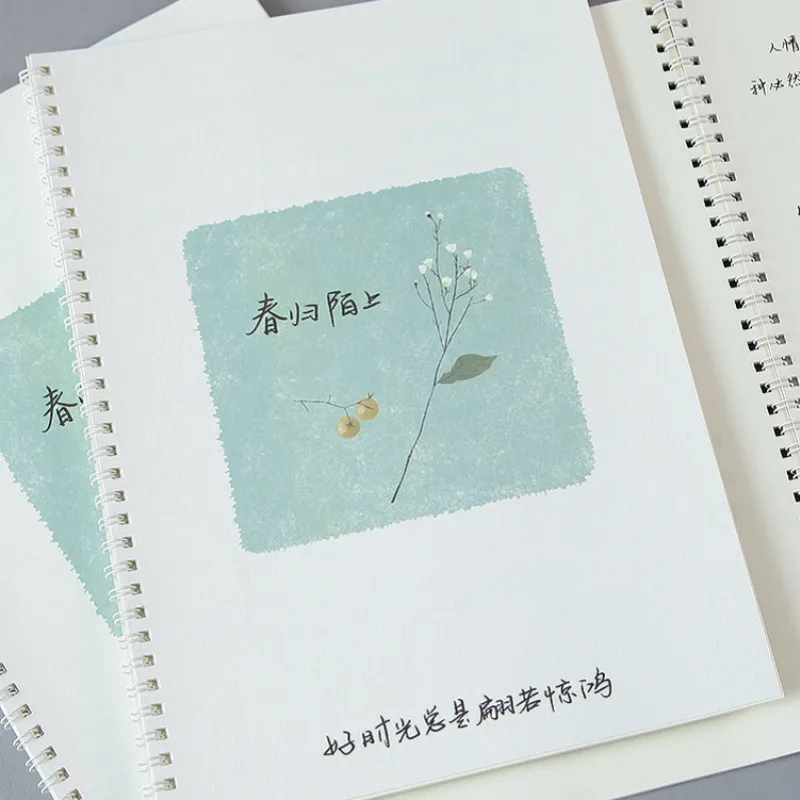 春归陌上
好时光总是翩若惊鸿
春
人情
种依然